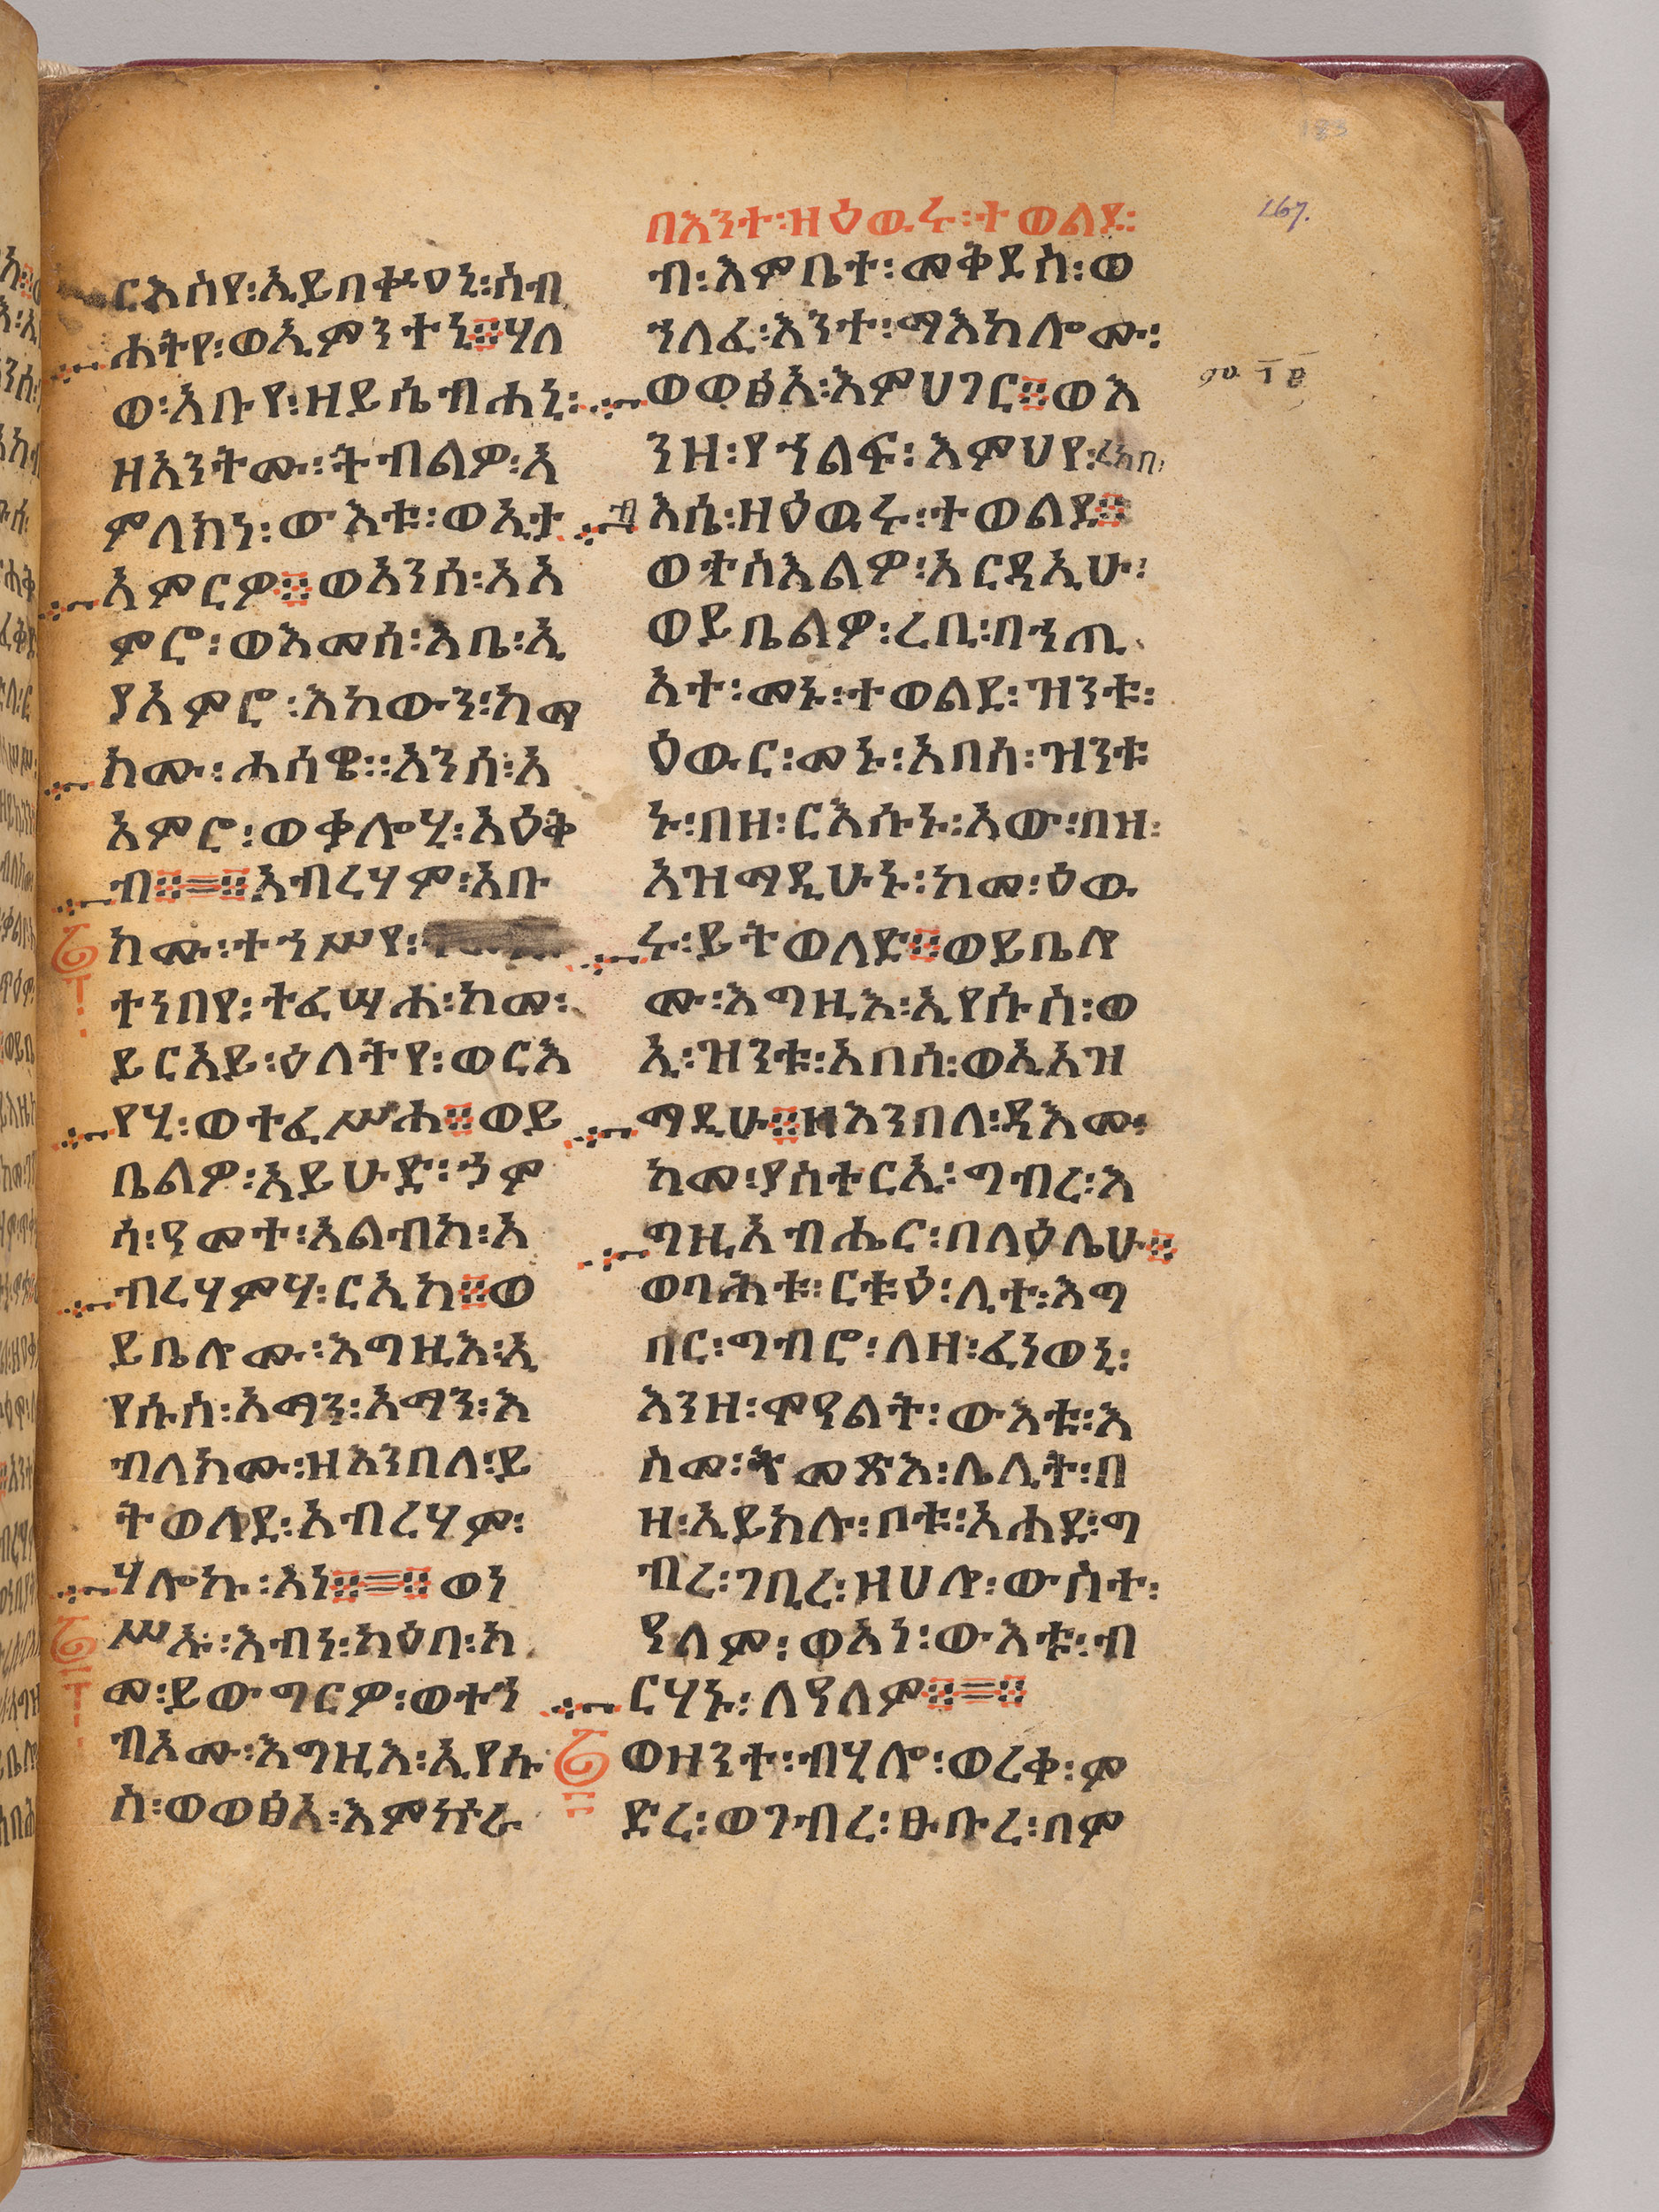 ርእስየ፡ኢይበቍዐኒ፡ስብ
ሐትየ፡ወኢምንተኒ፨ሃለ
ወ፡አቡየ፡ዘይሴብሐኒ፡
ዘአንትሙ፡ትብልዎ፡አ
ምላክነ፡ውእቱ፡ወኢታ
አምርዎ፨ወአንሰ፡አአ
ምሮ፡ወእመሰ፡እቤ፡ኢ
ያአምሮ፡እከውን፡ከማ
ክሙ፡ሐሰዌ፡፡አንሰ፡አ
አምሮ፡ወቃሎሂ፡አዐቅ
ብ፨=፨አብረሃም፡አቡ
ክሙ፡ተኀሥየ፡
ተንበየ፡ተፈሣሐ፡ከመ፡
ይርአይ፡ዕለትየ፡ወርእ
የሂ፡ወተፈሥሐ፨ወይ
ቤልዎ፡አይሁድ፡ኃም
ሳ፡ዓመተ፡አልብከ፡አ
ብረሃምሃ፡ርኢከ፨ወ
ይቤሎሙ፡እግዚእ፡ኢ
የሱስ፡አማን፡አማን፡እ
ብለክሙ፡ዘእንበለ፡ይ
ትወለደ፡አብረሃም፡
ሃሎኩ፡አነ፨=፨ወነ
ሥኡ፡እብነ፡ከዕበ፡ከ
መ፡ይውግርዎ፡ወተኀ
ብአሙ፡እግዚእ፡ኢየሱ
ስ፡ወወፅአ፡እምኵራ
በእንተ፡ዘዕዉሩ፡ተወልደ፡፡
ብ፡እምቤተ፡መቅደስ፡ወ
ኀለፈ፡እንተ፡ማእከሎሙ፡
ወወፅአ፡እምሀገር፨ወእ
ንዘ፡የኀልፍ፡እምህየ፡ረከበ፡
ብእሴ፡ዘዕዉሩ፡ተወልደ፨
ወተስእልዎ፡አርዳኢሁ፡
ወይቤልዎ፡ረቢ፡በኀጢ
አተ፡መኑ፡ተወልደ፡ዝንቱ፡
ዕዉር፡መኑ፡አበሰ፡ዝንቱ
ኑ፡በዘ፡ርእሱኑ፡አው፡በዝ፡
አዝማዲሁኑ፡ከመ፡ዕዉ
ሩ፡ይትወለድ፨ወይቤሎ
ሙ፡እግዚእ፡ኢየሱስ፡ወ
ኢ፡ዝንቱ፡አበሰ፡ወኢአዝ
ማዲሁ፨ዘእንበለ፡ዳእሙ፡
ከመ፡ያስተርኢ፡ግብረ፡እ
ግዚአብሔር፡በላዕሌሁ፨
ወባሕቱ፡ርቱዕ፡ሊተ፡እግ
በር፡ግብሮ፡ለዘ፡ፈነወኒ፡
እንዘ፡መዓልት፡ውእቱ፡እ
ስመ፡ትመጽእ፡ሌሊት፡በ
ዘ፡ኢይክሉ፡ቦቱ፡አሐደ፡ግ
ብረ፡ገቢረ፡ዘሀሎ፡ውስተ፡
ዓለም፡ወአነ፡ውእቱ፡ብ
ርሃኑ፡ለዓለም፨=፨
ወዘንተ፡ብሂሎ፡ወረቀ፡ም
ድረ፡ወገብረ፡ፁቡረ፡በም
167.